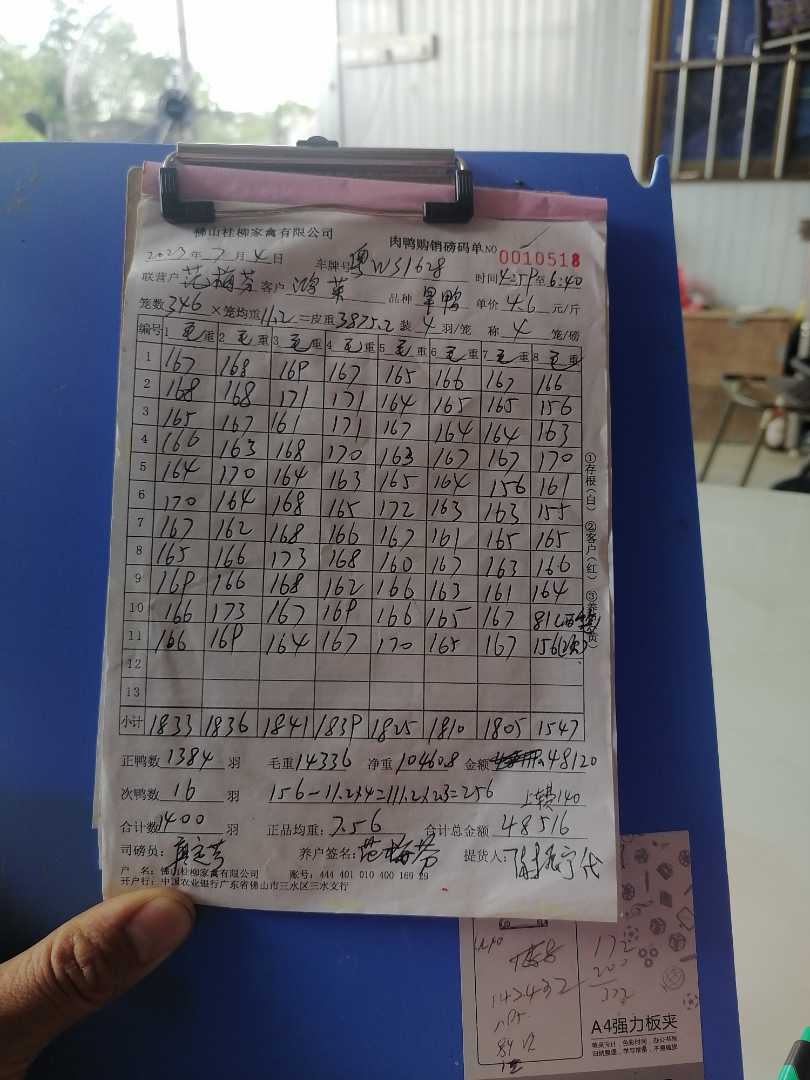 佛山桂柳家禽有限公司 肉鸭购销磅码单 NO 0010518
2023年7月4日 车牌号 粤WS1628 时间4:59至6:40
联营户 范梅芬 客户 鸿英 品种 旱鸭 单价 4.6 元/斤
笼数 346 ×笼均重 11.2 =皮重 3875.2 装 4 羽/笼 称 4 笼/磅
编号 1 毛重 2 毛重 3 毛重 4 毛重 5 毛重 6 毛重 7 毛重 8 毛重
1 167 168 169 167 165 166 167 166
2 168 168 171 171 164 165 165 156
3 165 167 161 171 167 164 164 163
4 166 163 168 170 163 167 167 170
5 164 170 164 163 165 164 156 161
6 170 164 168 165 172 163 163 155
7 167 162 168 166 167 161 165 165
8 165 166 173 168 160 167 163 166
9 169 166 168 162 166 163 161 164
10 166 173 167 169 166 165 167 81
11 166 169 164 167 170 165 167 156(次)
12
13
小计 1833 1836 1841 1839 1825 1810 1805 1547
正鸭数 1384 羽 毛重 14336 净重 10460.8 金额 48120
次鸭数 16 羽 156-11.2×4=111.2×2.3=256 上车费140
合计数 1400 羽 正品均重: 7.56 合计总金额 48516
司磅员: 养户签名: 范梅芬 提货人:
户 名: 佛山桂柳家禽有限公司 账号: 444 401 010 400 169 29
开户行: 中国农业银行广东省佛山市三水区三水支行
①存根(白) ②客户(红) ③养
172
200
372
A4强力板夹